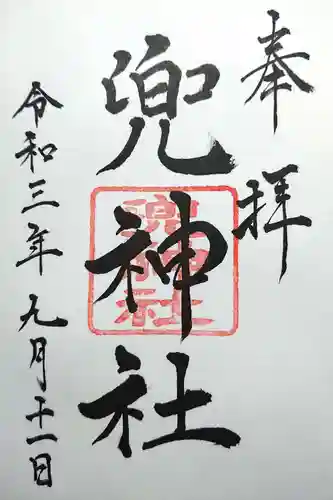 奉拝
兜神社
兜神社
令和三年九月十一日